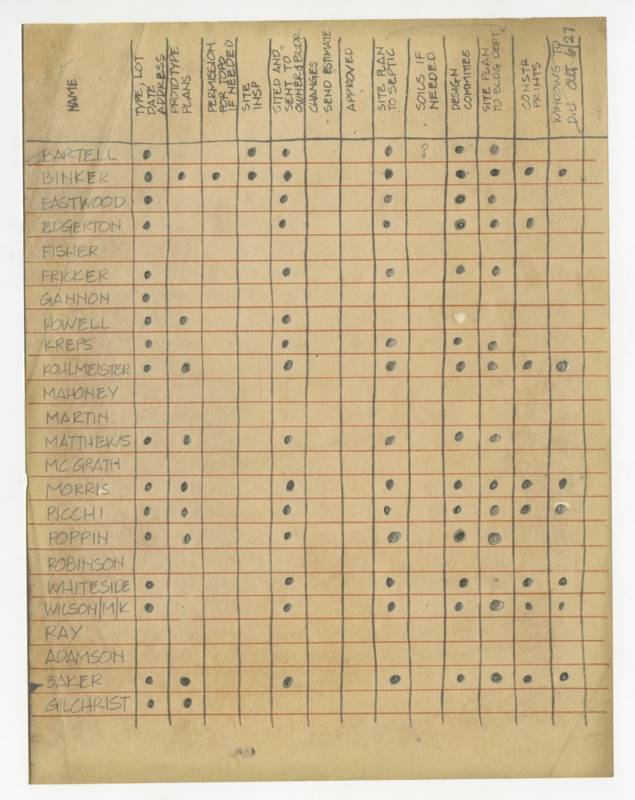 NAME
TYPE, LOT
DATE
ADDRESS
PROTOTYPE
PLANS
PERMISSION
FOR TOPO
IF NEEDED
SITE
INSP
SITED AND
SENT TO
OWNER & BLDR.
CHANGES
SEND ESTIMATE
APPROVED
SITE PLAN
TO SEPTIC
SOILS IF
NEEDED
DESIGN
COMMITTEE
SITE PLAN
TO BLDG DEPT
CONSTR
PRINTS
WINDOWS TO
6/27
BARTELL ?
BINKER
EASTWOOD
EDGERTON
FISHER
FRICKER
GANNON
HOWELL
KREPS
KOHLMEISTER
MAHONEY
MARTIN
MATTHEWS
MC GRATH
MORRIS
PICCHI
POPPIN
ROBINSON
WHITESIDE
WILSON/M/K
RAY
ADAMSON
BAKER
GILCHRIST